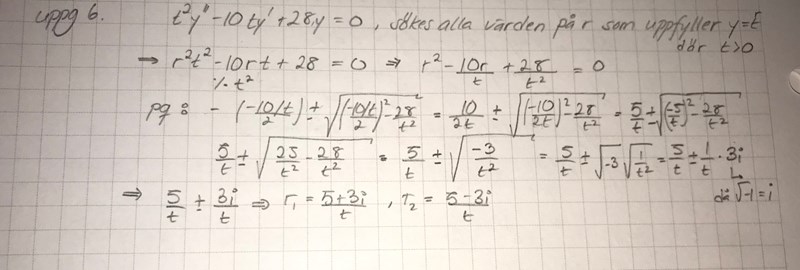 uppg 6. t²y" - 10ty' + 28y = 0, sökes alla värden på r som uppfyller y = t^r
där t>0
→ r²t² - 10rt + 28 = 0 ⇒ r² - 10r/t + 28/t² = 0
% t²
pq: - (-10/t)/2 ± √((-10/t)/2)² - 28/t² = 10/2t ± √(-10/2t)² - 28/t² = 5/t ± √(-5/t)² - 28/t²
5/t ± √25/t² - 28/t² = 5/t ± √-3/t² = 5/t ± √-3 √1/t² = 5/t ± 1/t · 3i
⇒ 5/t ± 3i/t ⇒ r₁ = 5+3i/t, r₂ = 5-3i/t
då √-1 = i